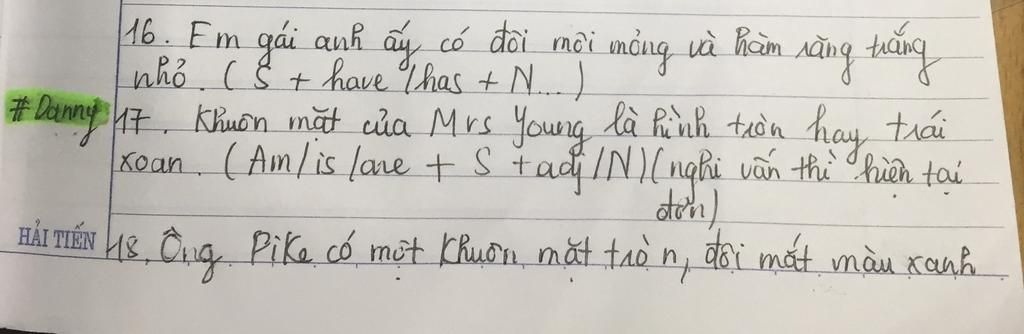 16. Em gái anh ấy có đôi môi mỏng và hàm răng trắng
nhỏ. (S + have /has + N...)
#Danny
17. Khuôn mặt của Mrs Young là hình tròn hay trái
xoan. (Am/is/are + S + adj/N)(nghi vấn thì hiện tại
đơn)
HẢI TIẾN
18. Ông Pike có một khuôn mặt tròn, đôi mắt màu xanh